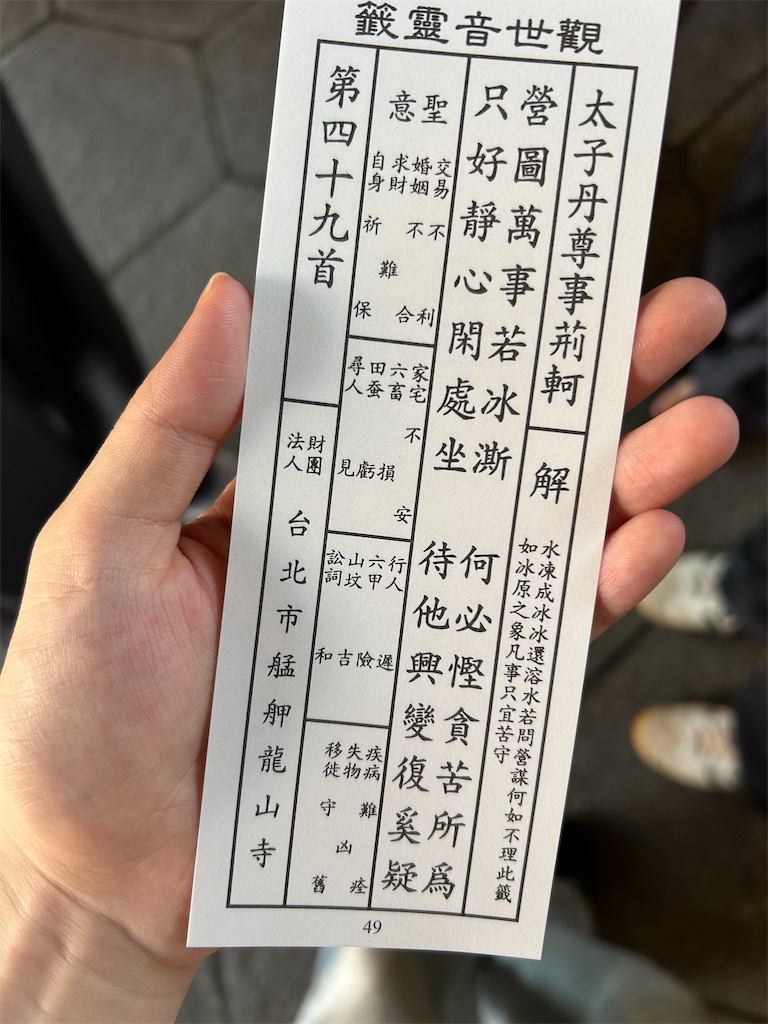 觀世音靈籤
太子丹尊事荊軻
解
水凍成冰冰還溶水若問營謀何如不理此籤
如冰原之象凡事只宜苦守
營圖萬事若冰澌 何必慳貪苦所爲
只好靜心閑處坐 待他興變復奚疑
聖意
交易不利
婚姻不合
求財難
自身祈保
家宅不安
六畜損
田蚕虧
尋人見
行人遲
六甲險
山坟吉
訟詞和
疾病難痊
失物凶
移徙守舊
第四十九首
財團法人 台北市艋舺龍山寺
49